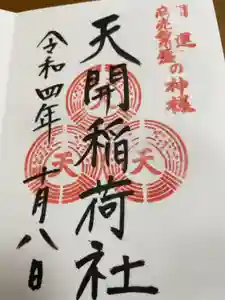 開運
商売繁盛の神様
天開稲荷社
令和四年
十月八日
天
天